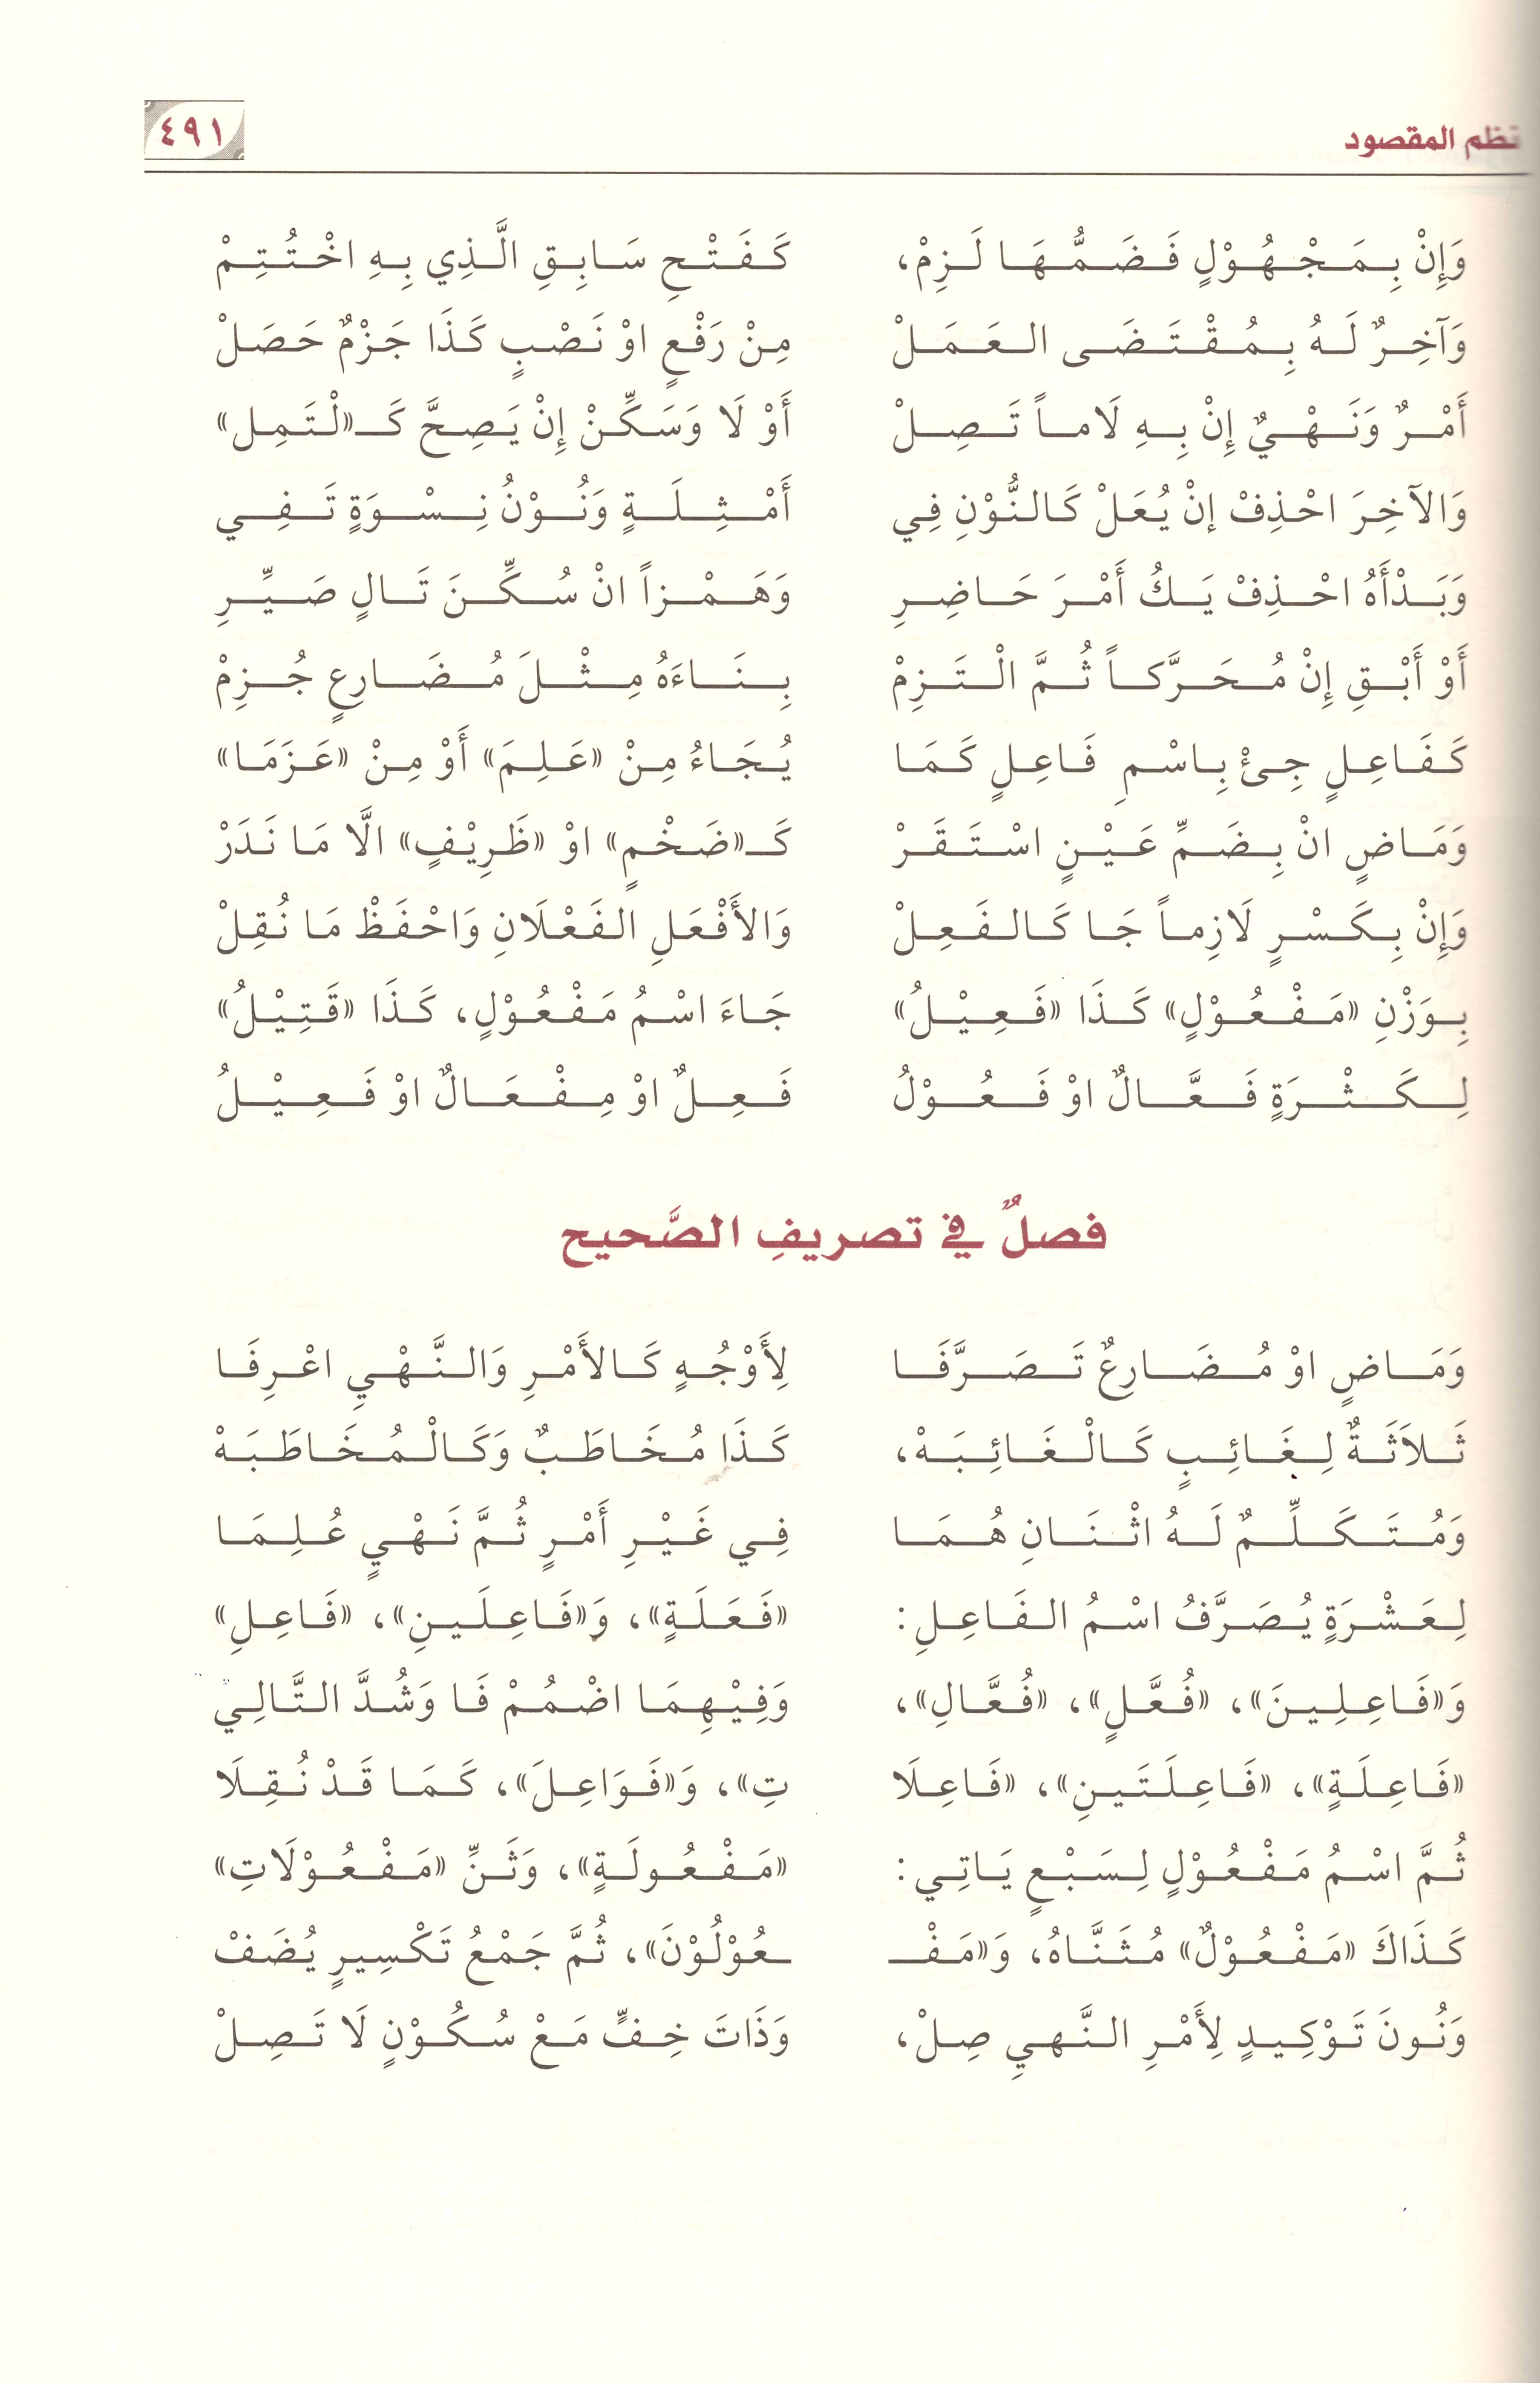 نظم المقصود ٤٩١
وَإِنْ بِمَجْهُوْلٍ فَضَمُّهَا لَزِمْ، كَفَتْحِ سَابِقِ الَّذِي بِهِ اخْتُتِمْ
وَآخِرٌ لَهُ بِمُقْتَضَى العَمَلْ مِنْ رَفْعٍ اوْ نَصْبٍ كَذَا جَزْمٌ حَصَلْ
أَمْرٌ وَنَهْيٌ إِنْ بِهِ لَاماً تَصِلْ أَوْ لَا وَسَكِّنْ إِنْ يَصِحَّ كَـ«لْتَمِل»
وَالآخِرَ احْذِفْ إنْ يُعَلْ كَالنُّوْنِ فِي أَمْثِلَةٍ وَنُوْنُ نِسْوَةٍ تَفِي
وَبَدْأَهُ احْذِفْ يَكُ أَمْرَ حَاضِرِ وَهَمْزاً انْ سُكِّنَ تَالٍ صَيِّرِ
أَوْ أَبْقِ إِنْ مُحَرَّكاً ثُمَّ الْتَزِمْ بِنَاءَهُ مِثْلَ مُضَارِعٍ جُزِمْ
كَفَاعِلٍ جِئْ بِاسْمِ فَاعِلٍ كَمَا يُجَاءُ مِنْ «عَلِمَ» أَوْ مِنْ «عَزَمَا»
وَمَاضٍ انْ بِضَمِّ عَيْنٍ اسْتَقَرْ كَـ«ضَخْمٍ» اوْ «ظَرِيْفٍ» الَّا مَا نَدَرْ
وَإِنْ بِكَسْرٍ لَازِماً جَا كَالفَعِلْ وَالأَفْعَلِ الفَعْلَانِ وَاحْفَظْ مَا نُقِلْ
بِوَزْنِ «مَفْعُوْلٍ» كَذَا «فَعِيْلُ» جَاءَ اسْمُ مَفْعُوْلٍ، كَذَا «قَتِيْلُ»
لِكَثْرَةٍ فَعَّالٌ اوْ فَعُوْلُ فَعِلٌ اوْ مِفْعَالٌ اوْ فَعِيْلُ
فصلٌ في تصريفِ الصَّحيح
وَمَاضٍ اوْ مُضَارِعٌ تَصَرَّفَا لِأَوْجُهٍ كَالأَمْرِ وَالنَّهْيِ اعْرِفَا
ثَلاَثَةٌ لِغَائِبٍ كَالْغَائِبَهْ، كَذَا مُخَاطَبٌ وَكَالْمُخَاطَبَهْ
وَمُتَكَلِّمٌ لَهُ اثْنَانِ هُمَا فِي غَيْرِ أَمْرٍ ثُمَّ نَهْيٍ عُلِمَا
لِعَشْرَةٍ يُصَرَّفُ اسْمُ الفَاعِلِ: «فَعَلَةٍ»، وَ«فَاعِلَينِ»، «فَاعِلِ»
وَ«فَاعِلِينَ»، «فُعَّلٍ»، «فُعَّالِ»، وَفِيْهِمَا اضْمُمْ فَا وَشُدَّ التَّالِيْ
«فَاعِلَةٍ»، «فَاعِلَتَينِ»، «فَاعِلَا تِ»، وَ«فَوَاعِلَ»، كَمَا قَدْ نُقِلَا
ثُمَّ اسْمُ مَفْعُوْلٍ لِسَبْعٍ يَاتِي: «مَفْعُولَةٍ»، وَثَنِّ «مَفْعُوْلَاتِ»
كَذَاكَ «مَفْعُوْلٌ» مُثَنَّاهُ، وَ«مَفْـ ـعُوْلُوْنَ»، ثُمَّ جَمْعُ تَكْسِيرٍ يُضَفْ
وَنُونَ تَوْكِيدٍ لِأَمْرِ النَّهيِ صِلْ، وَذَاتَ خِفٍّ مَعْ سُكُوْنٍ لَا تَصِلْ